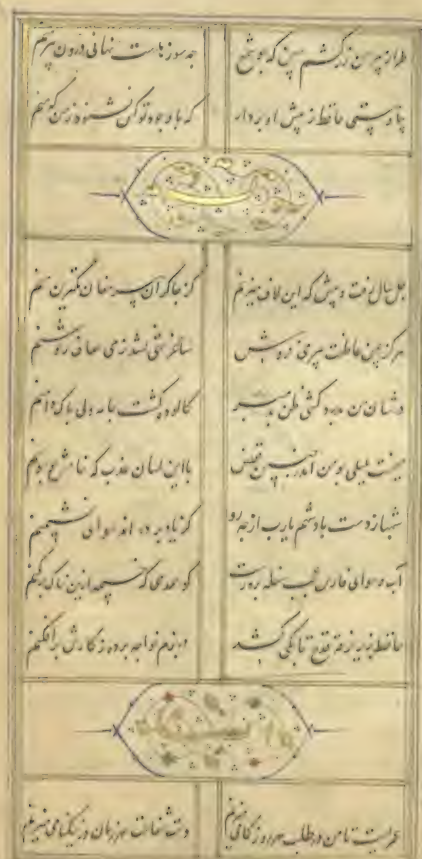 طراز پیرهن زرکشم مبین که چو شمع که سوزهاست نهانی درون پیرهنم
بیا و هستی حافظ ز پیش او بردار که با وجود تو کس نشنود ز من که منم
چل سال رفت و بیش که این لاف میزنم کز چاکران پیر مغان کمترین منم
هرگز بیمن عاطفت پیر می فروش ساغر تهی نشد ز می صاف روشنم
در شان من بدرد کشی ظن بد مبر کالوده گشت جامه ولی پاک دامنم
حیفست بلبلی چو من اندر چنین قفس با این لسان عذب که خامش چو سوسنم
شهباز دست پادشهم یارب از چه رو کز یاد برده اند هوای نشیمنم
آب و هوای فارس عجب سفله پرورست کو همرهی که خیمه ازین خاک برکنم
حافظ بزیر خرقه قدح تا بکی کشد در بزم خواجه پرده ز کارش برافکنم
عمریست تا من در طلب هر روز گامی میزنم دست شفاعت هر زمان در نیکنامی میزنم